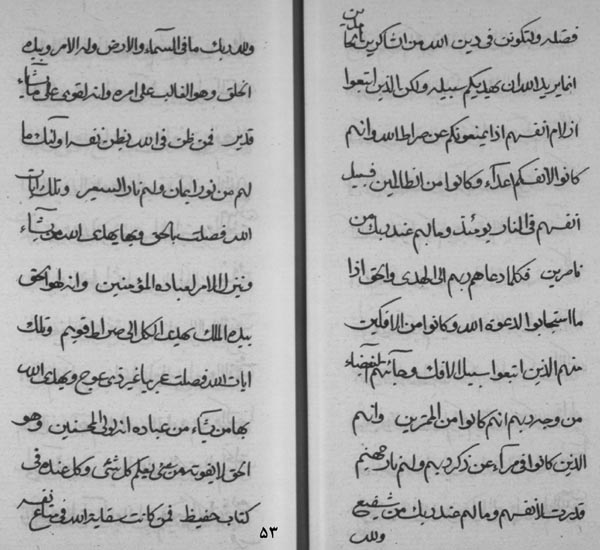 فضله ولتكونن فى دين الله من الشاكرين
انما يريد الله ان يهديكم سبيله ولكن الذين اتبعوا
انفسهم اذا يمنعونكم عن صراط الله وانهم
كانوا لانفسكم اعدآء وكانوا من الظالمين فبئس
انفسهم فى النار يومئذ وما لهم عند ربك من
ناصرين فكلما دعاهم ربهم الى الهدى والحق اذا
ما استجابوا لدعوة الله وكانوا من الافكين
منهم الذين اتبعوا سبيل الافك وجآئتهم البغضاء
من وجه ربهم انهم كانوا من وانهم
الذين كانوا فى مرآء عن ذكر ربهم ولهم نار جهنم
قدرت لانفسهم وما لهم عند ربك من شفيع
ولله
ولله ربك ما فى السمآء والارض وله الامر وبيده
الخلق وهو الغالب على امره وانه لقوى على ما يشآء
قدير فمن ظن فى الله بظن نفسه اولئك ما
لهم من نور ايمان ولهم نار السعير وتلك آيات
الله فصلت بالحق وبها يهدى الله من يشآء
وينزل الامر لعباده المؤمنين وانه لهو الحق
بيده الملك يهدى الكل الى صراط قويم وتلك
ايات الله فصلت عربيا غير ذى عوج ويهدى الله
بها من يشآء من عباده انه لولى المحسنين وهو
الحق لا يفوته من شئ يعلم كل شئ وكل عنده فى
كتاب حفيظ فمن كانت الله فى نفسه
٥٣